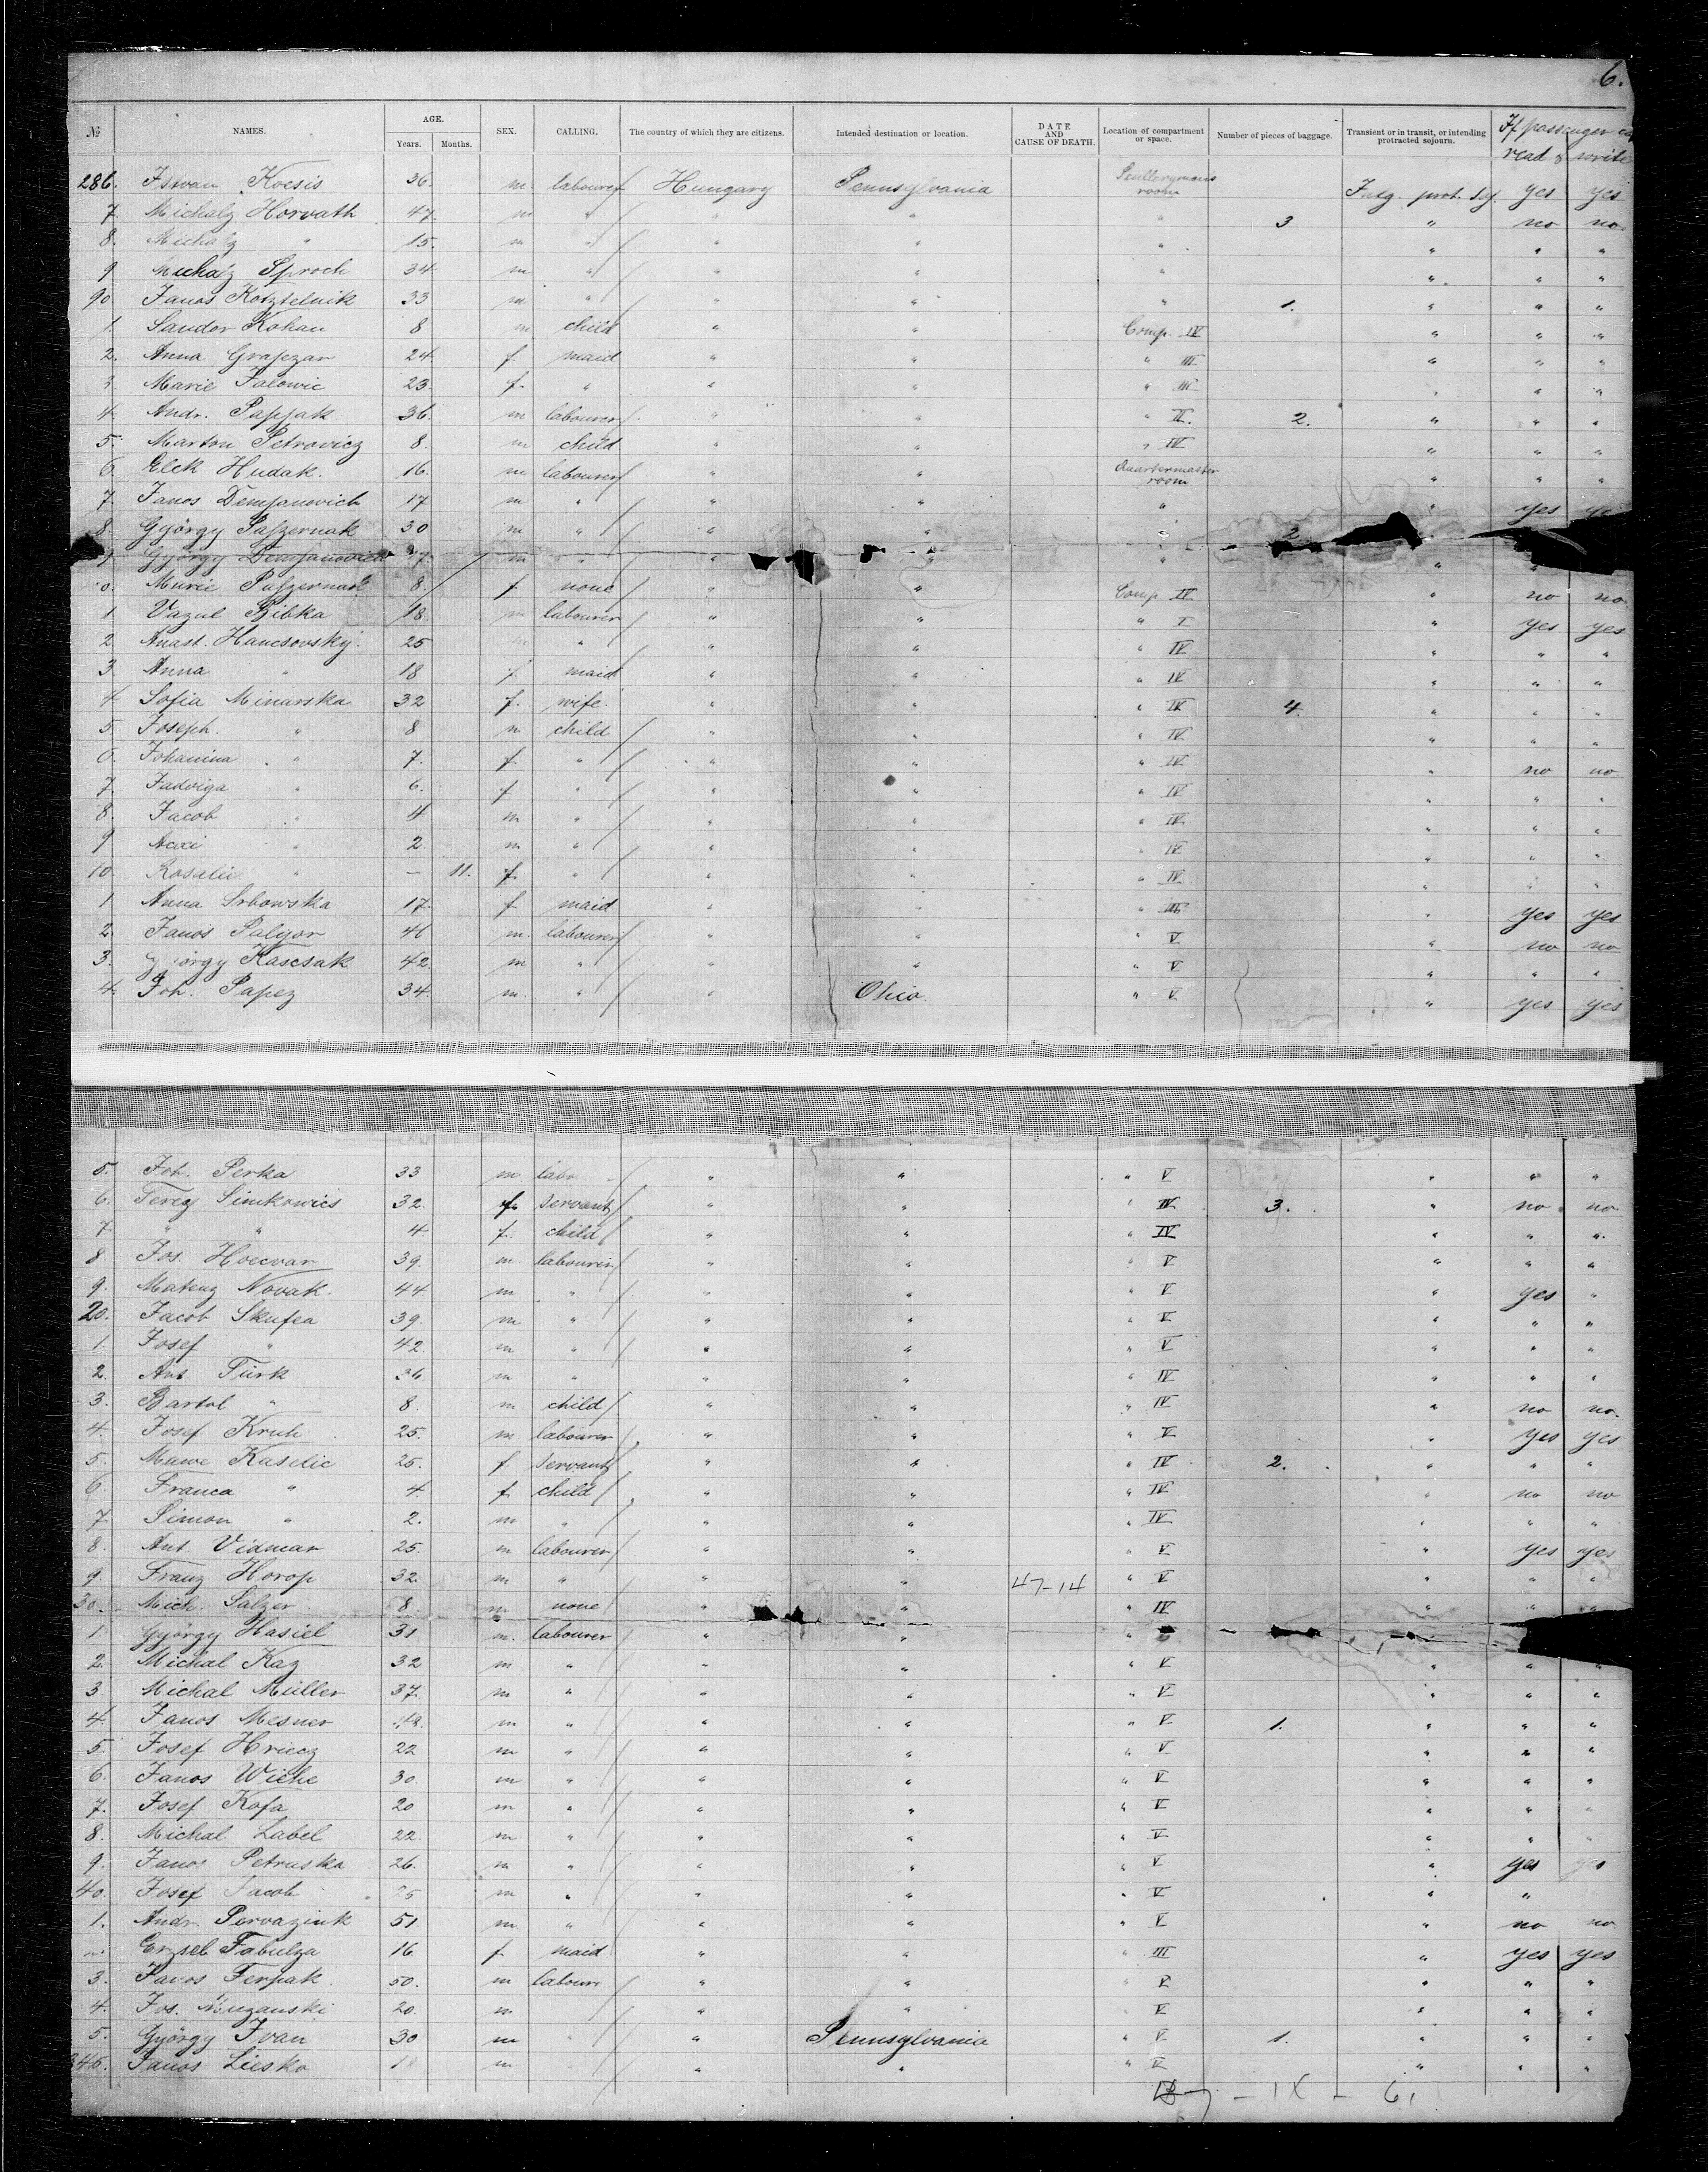 6.
№ NAMES. AGE. Years. Months. SEX. CALLING. The country of which they are citizens. Intended destination or location. DATE AND CAUSE OF DEATH. Location of compartment or space. Number of pieces of baggage. Transient or in transit, or intending protracted sojourn. If passenger can read & write
286. Istvan Kocsis 36. m. labourer Hungary Pennsylvania Scullerymans room Intg. prot. soj. yes yes
7. Michalz Horvath 47. m " " " " 3 " no no
8. Michalz " 15. m " " " " " " "
9 Michalz Sproch 34. m " " " " " " "
90. Janos Kosztelnik 33 m " " " " 1. " " "
1. Sandor Kohan 8 m child " " Comp. IV " " "
2. Anna Graszar 24. f. maid " " " III " " "
3. Marie Jalowic 23. f. " " " " III " " "
4. Andr. Papjak 36. m labourer " " " II. 2. " " "
5. Marton Petrovicz 8. m child " " " IV " " "
6. Elek Hudak. 16. m labourer " " Quartermaster room " " "
7. Janos Demjanovich 17 m " " " " " yes
8. György Paszernak 30 m " " " " 2
9. György Demjanovich 17 m " " " " "
0. Marie Paszernak 8. f none " " Comp IV " no no
1. Vazul Bibka 18. m labourer " " " V " yes yes
2. Anast. Hancsovskij. 25 " " " " IV " " "
3. Anna " 18 f. maid " " " IV " " "
4. Sofia Minarska 32 f. wife. " " " IV 4. " " "
5. Joseph. " 8 m child " " " IV " " "
6. Johanina " 7. f. " " " " IV " no no
7. Jadviga " 6. f " " " " IV " " "
8. Jacob " 4 m " " " " IV " " "
9. " 2. m " " " " IV " " "
10. Rosalie " — 11. f. " " " " IV " " "
1 Anna Srbowska 17. f maid " " " III " yes yes
2. Janos Paligor 46 m. labourer " " " V " no no
3. György Kascsak 42 m " " " " V " " "
4. Joh. Papez 34. m. " " Ohio. " V " yes yes
5. Joh. Perka 33 m labo " " " V " " "
6. Terez Simkowics 32. f. servant " " " IV 3. " no no
7. " " 4. f. child " " " IV " " "
8. Jos. Hocevar 39. m. labourer " " " V " " "
9. Mateuz Novak. 44 m. " " " " V " yes "
20. Jacob Skufca 39. m " " " " V " " "
1. Josef " 42. m " " " " V " " "
2. Ant. Türk 36. m " " " " IV " " "
3. Bartol " 8. m child " " " IV " no no.
4. Josef Kruh 25. m. labourer " " " V " yes yes
5. Mawe Kaselic 25. f servant " " " IV 2. " " "
6. Franca " 4. f child " " " IV " no no
7. Simon " 2. m " " " " IV " " "
8. Ant. Vidmar 25. m labourer " " " V " yes yes
9. Franz Horop 32. m " " " 47-14 " V " " "
30. Mich. Salzer 8. m none " " " IV " " "
1. György Hasiel 31 m. labourer " " "
2. Michal Kaz 32 m " " " " V " " "
3. Michal Müller 37. m " " " " V " " "
4. Janos Mesner m " " " " V 1. " " "
5. Josef Hriecz 22 m " " " " V " " "
6. Janos Wiche 30. m " " " " V " " "
7. Josef Kofa 20 m " " " " V " " "
8. Michal Label 22. m " " " " V " " "
9. Janos Petruska 26. m " " " " V " yes yes
40. Josef Jacob 25 m " " " " V " "
1. Andr. Pervaziuk 51. m " " " " V " no no
Erzseb Fabulza 16 f. maid " " " III " yes yes
3. Janos Ferpak. 50. m laboure " " " V " " "
4. Jos. 20. m " " " V " " "
5. György Ivan 30 m " " Pennsylvania " V 1. " " "
346. Janos Liesko m " " " V " " "
- IX - 61